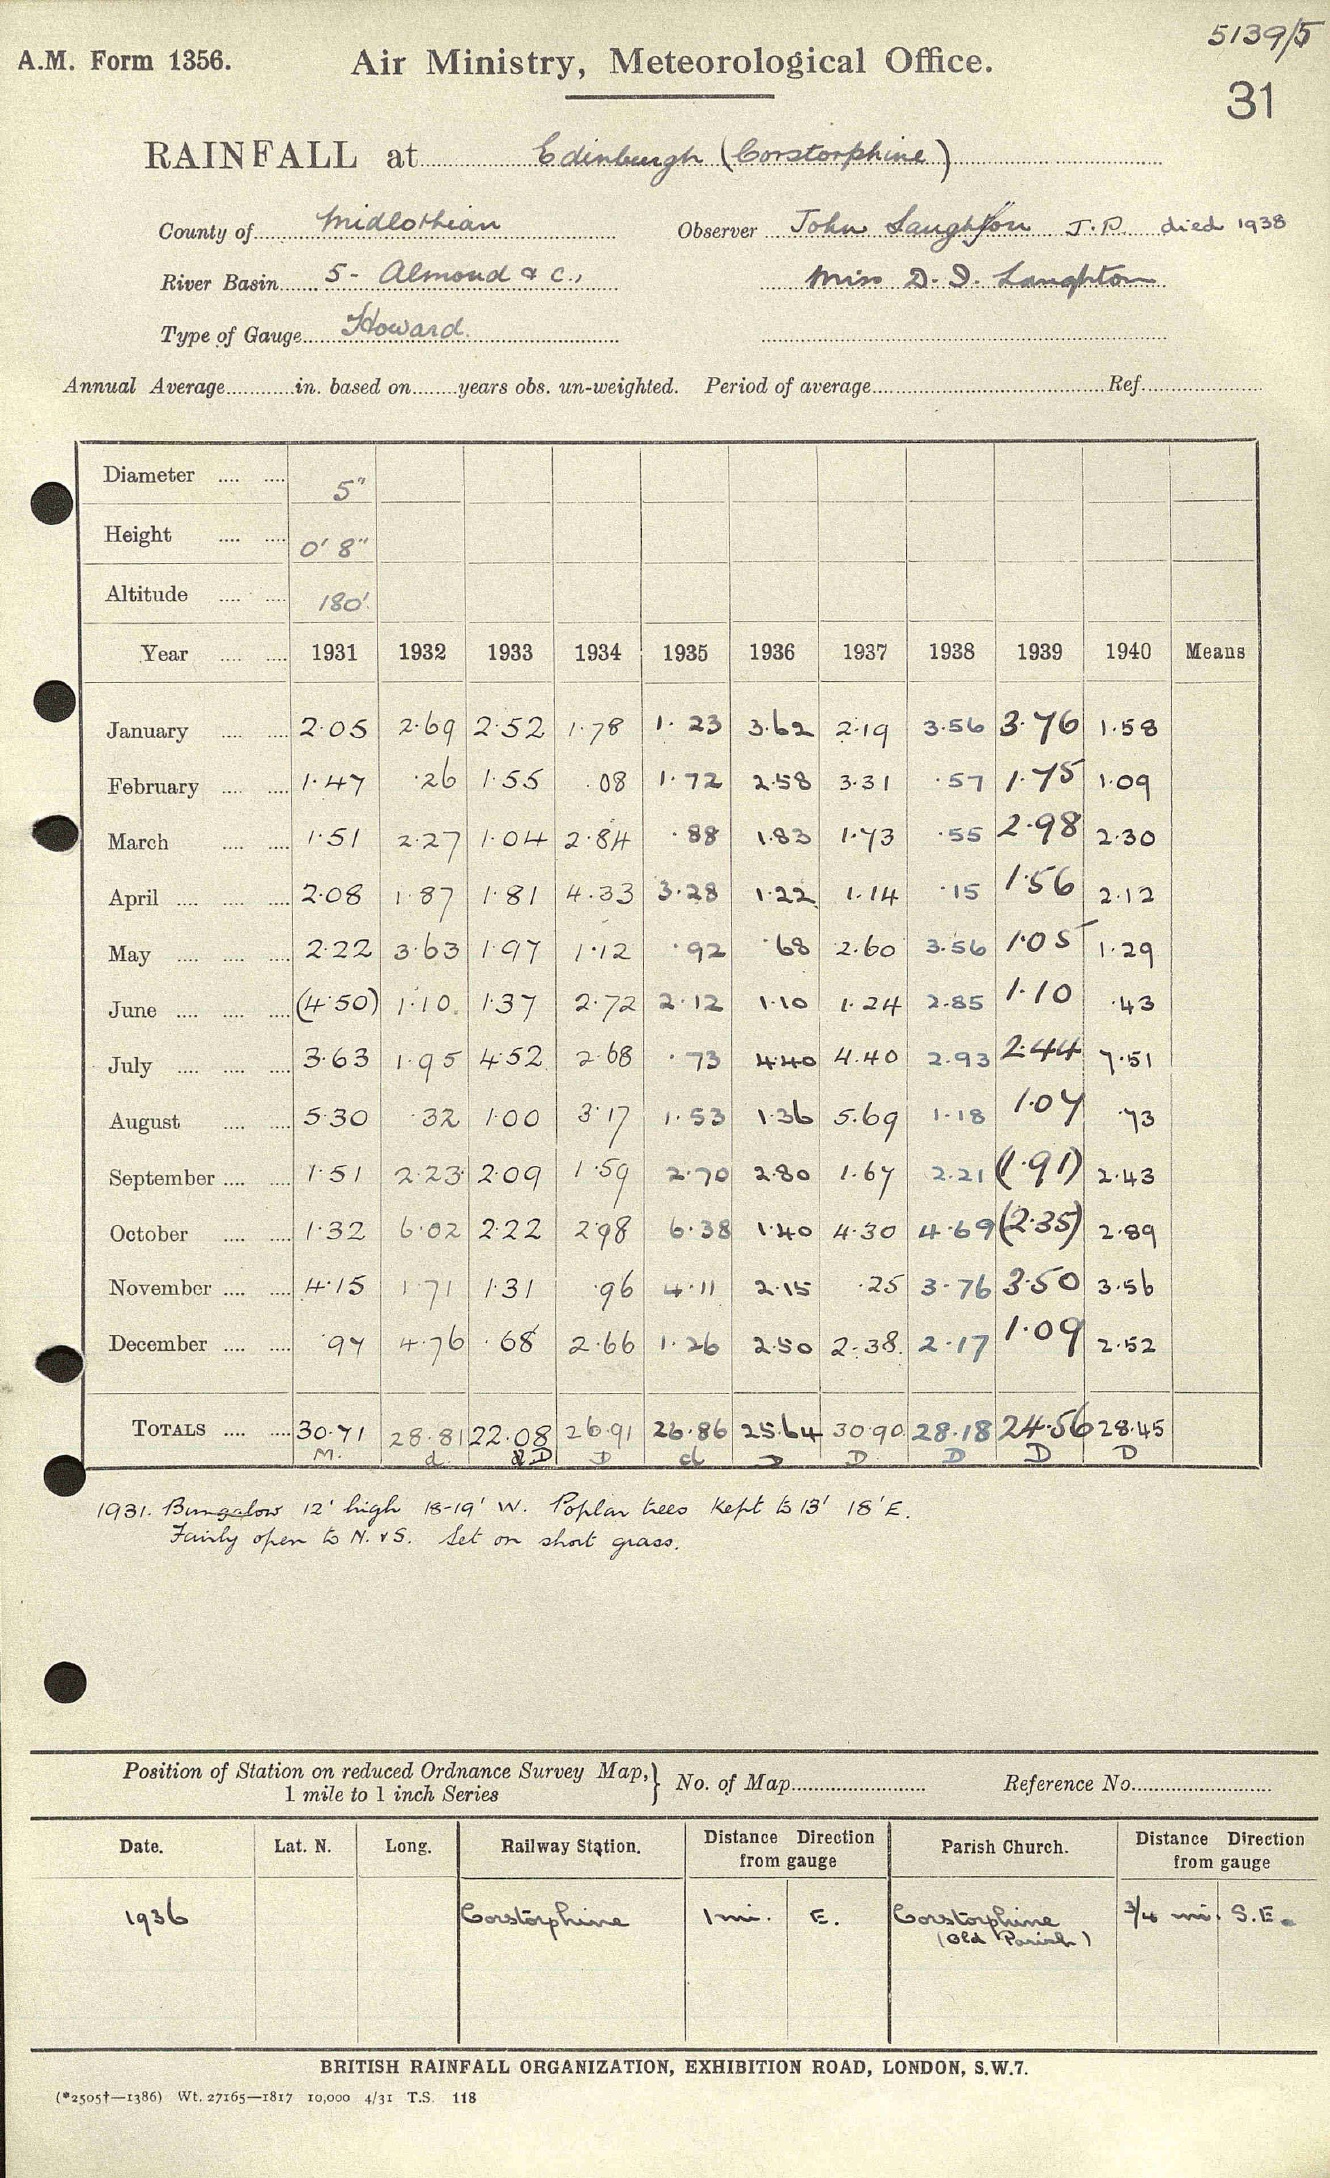 5139/5
A.M. Form 1356. Air Ministry, Meteorological Office.
31
RAINFALL at Edinburgh (Corstorphine)
County of Midlothian Observer John Laughton J.P. died 1938
River Basin 5 - Almond & c., Miss D. I. Laughton
Type of Gauge Howard.
Annual Average in. based on years obs. un-weighted. Period of average Ref.
Diameter 5"
Height 0' 8"
Altitude 180'
Year 1931 1932 1933 1934 1935 1936 1937 1938 1939 1940 Means
January 2.05 2.69 2.52 1.78 1.23 3.62 2.19 3.56 3.76 1.58
February 1.47 .26 1.55 .08 1.72 2.58 3.31 .57 1.75 1.09
March 1.51 2.27 1.04 2.84 .88 1.83 1.73 .55 2.98 2.30
April 2.08 1.87 1.81 4.33 3.28 1.22 1.14 .15 1.56 2.12
May 2.22 3.63 1.97 1.12 .92 .68 2.60 3.56 1.05 1.29
June (4.50) 1.10 1.37 2.72 2.12 1.10 1.24 2.85 1.10 .43
July 3.63 1.95 4.52 2.68 .73 4.40 4.40 2.93 2.44 7.51
August 5.30 .32 1.00 3.17 1.53 1.36 5.69 1.18 1.07 .73
September 1.51 2.23 2.09 1.59 2.70 2.80 1.67 2.21 (1.91) 2.43
October 1.32 6.02 2.22 2.98 6.38 1.40 4.30 4.69 (2.35) 2.89
November 4.15 1.71 1.31 .96 4.11 2.15 .25 3.76 3.50 3.56
December .97 4.76 .68 2.66 1.26 2.50 2.38 2.17 1.09 2.52
Totals 30.71 28.81 22.08 26.91 26.86 25.64 30.90 28.18 24.56 28.45
M. d D D d D D D D D
1931. Bungalow 12' high 18-19' W. Poplar trees kept to 13' 18' E.
Fairly open to N. & S. Set on short grass.
Position of Station on reduced Ordnance Survey Map, } No. of Map Reference No.
1 mile to 1 inch Series
Date. Lat. N. Long. Railway Station. Distance Direction from gauge Parish Church. Distance Direction from gauge
1936 Corstorphine 1 mi. E. Corstorphine 3/4 mi. S.E.
(Old Parish)
BRITISH RAINFALL ORGANIZATION, EXHIBITION ROAD, LONDON, S.W.7.
(*2505†—1386) Wt. 27165—1817 10,000 4/31 T.S. 118